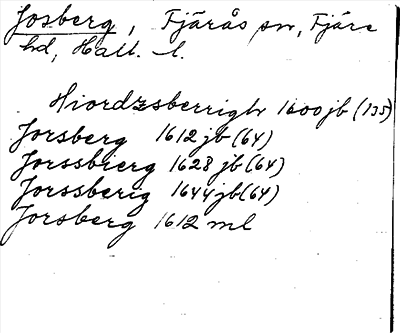 Josberg, Fjärås sn, Fjäre
hd, Hall. l.
Hiordzsberrigh 1600 jb (135)
Jorsberg 1612 jb (64)
Jorssbierg 1628 jb (64)
Jorssberig 1644 jb (64)
Jorsberg 1612 ml